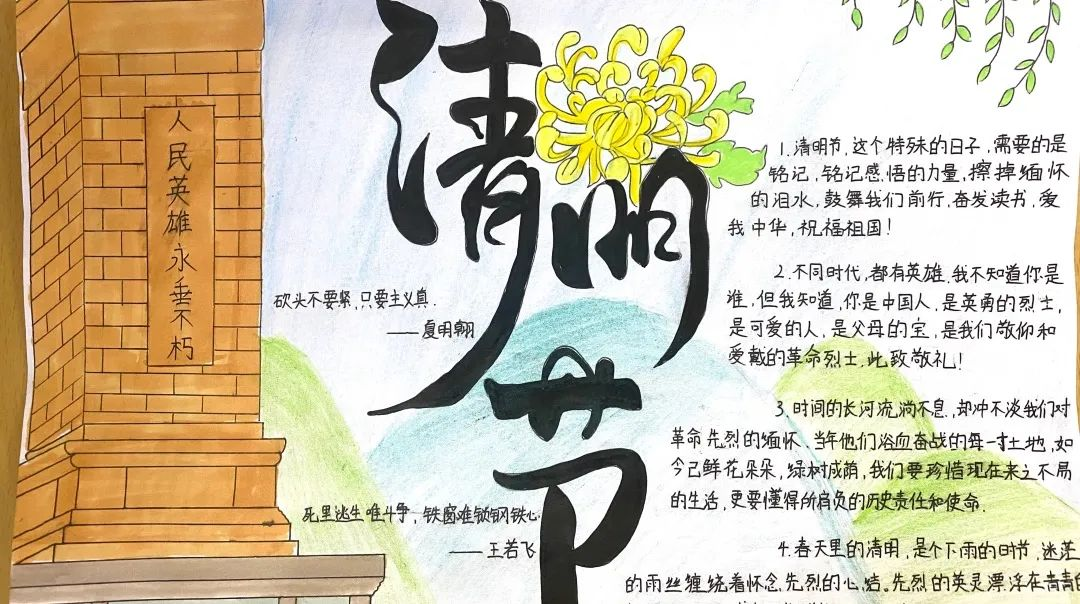 清明节
人民英雄永垂不朽
砍头不要紧,只要主义真.
——夏明翰
死里逃生唯斗争,铁窗难锁钢铁心.
——王若飞
1.清明节,这个特殊的日子,需要的是
铭记,铭记感悟的力量,擦掉缅怀
的泪水,鼓舞我们前行,奋发读书,爱
我中华,祝福祖国!
2.不同时代,都有英雄.我不知道你是
谁,但我知道,你是中国人,是英勇的烈士,
是可爱的人,是父母的宝,是我们敬仰和
爱戴的革命烈士.此致敬礼!
3.时间的长河流淌不息,却冲不淡我们对
革命先烈的缅怀.当年他们浴血奋战的每一寸土地,如
今已鲜花朵朵,绿树成荫,我们要珍惜现在来之不易
的生活,更要懂得所肩负的历史责任和使命.
4.春天里的清明,是个下雨的时节,迷茫
的雨丝缠绕着怀念先烈的心结.先烈的英灵漂浮在青青的